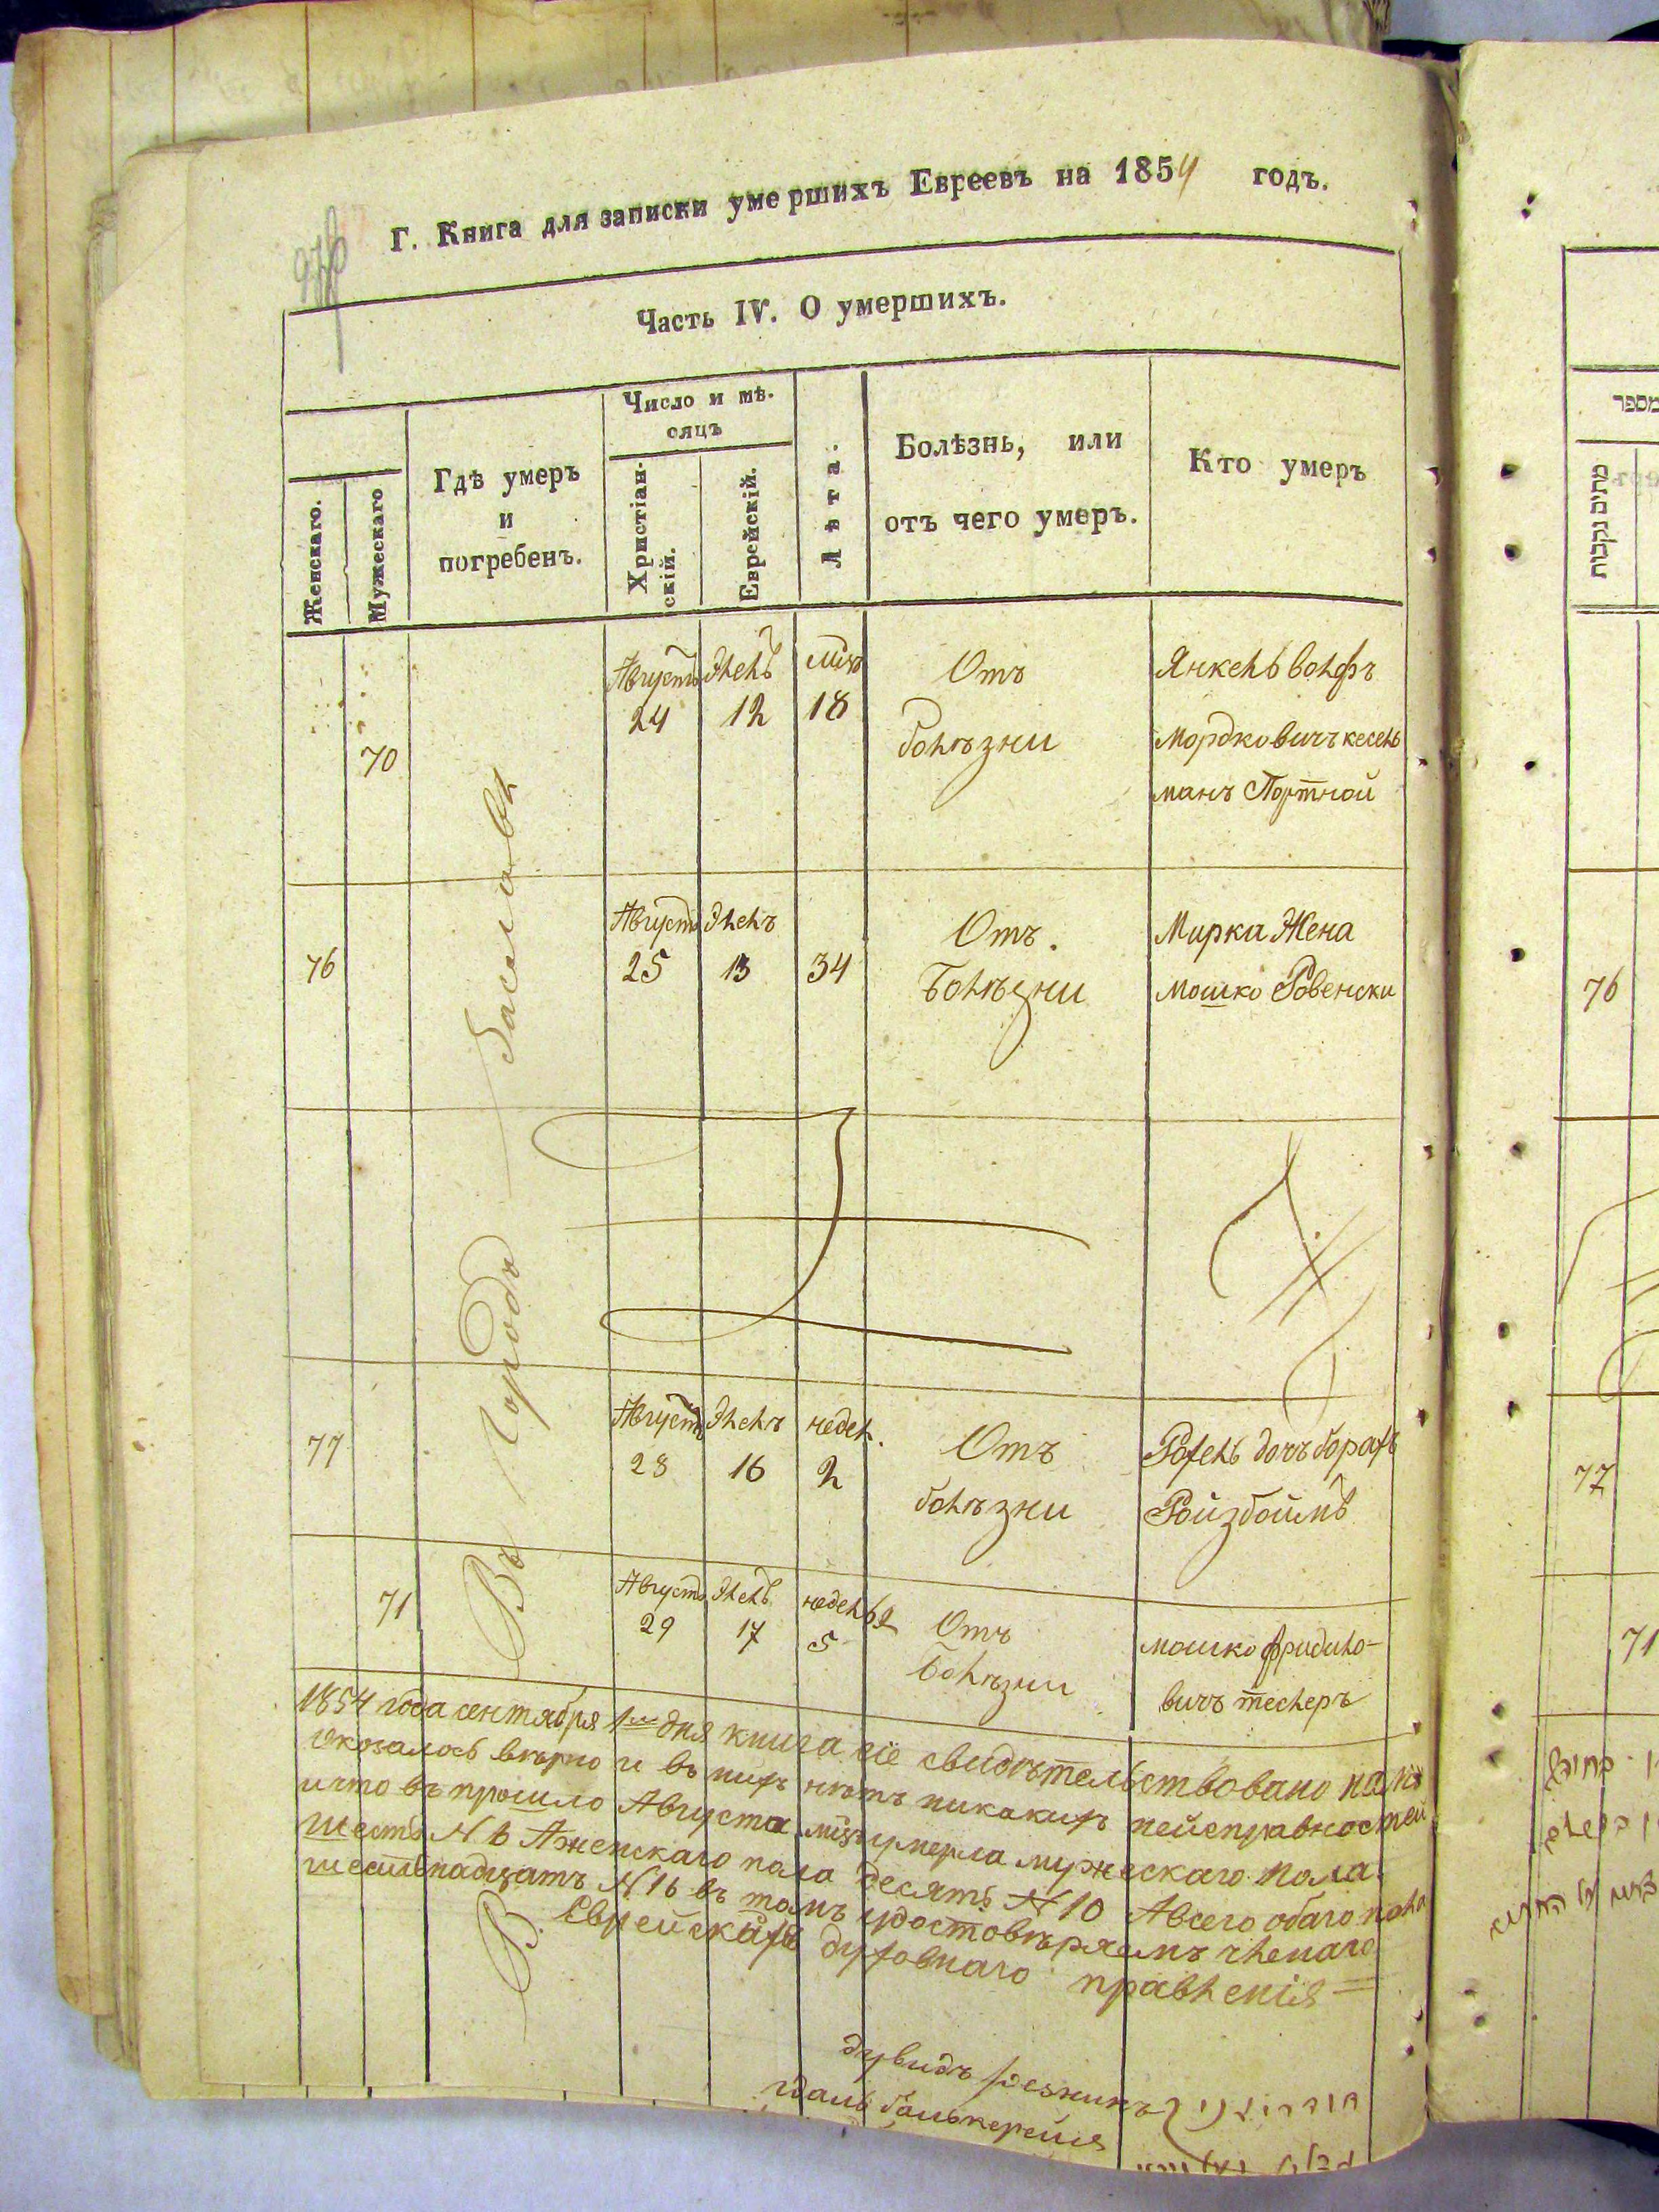 Г. Книга для записки умершихъ Евреевъ на 1854 годъ.
Часть IV. О умершихъ.
Женскаго.
Мужескаго
Гдѣ умеръ
и
погребенъ.
Число и мѣ-
сяцъ
Христіан-
скій.
Еврейскій.
Лѣта.
Болѣзнь, или
отъ чего умеръ.
Кто умеръ
Въ Городѣ Заславѣ
70
Августъ 24
Элель 12
18
Отъ
болѣзни
Янкель Волфъ
Мордковичъ Кесель
манъ Портной
76
Августъ 25
Элелъ 13
34
Отъ
Болѣзни
Мирка Жена
Мошко Ровенски
77
Августъ 28
Элелъ 16
недел. 2
Отъ
болѣзни
Рохель дочъ борахъ
Ройзбоймъ
71
Августъ 29
Элель 17
недель 5
Отъ
Болѣзни
Мошко фридило-
вичъ теслеръ
1854 года сентября 1 дня книга сіе свидѣтельствовано
Оказалось вѣрно и въ нихъ нѣтъ никакихъ неисправностей
и что въ прошло Августа умерла мужескаго пола
шесть N 6 А женскаго пола десять N 10 А всего обаго пола
шестьнадцать N 16 въ томъ удостовѣряемъ
Еврейскаго духовнаго правленія
дувидъ резникъ
מספר
מתים נקבות
76
77
71